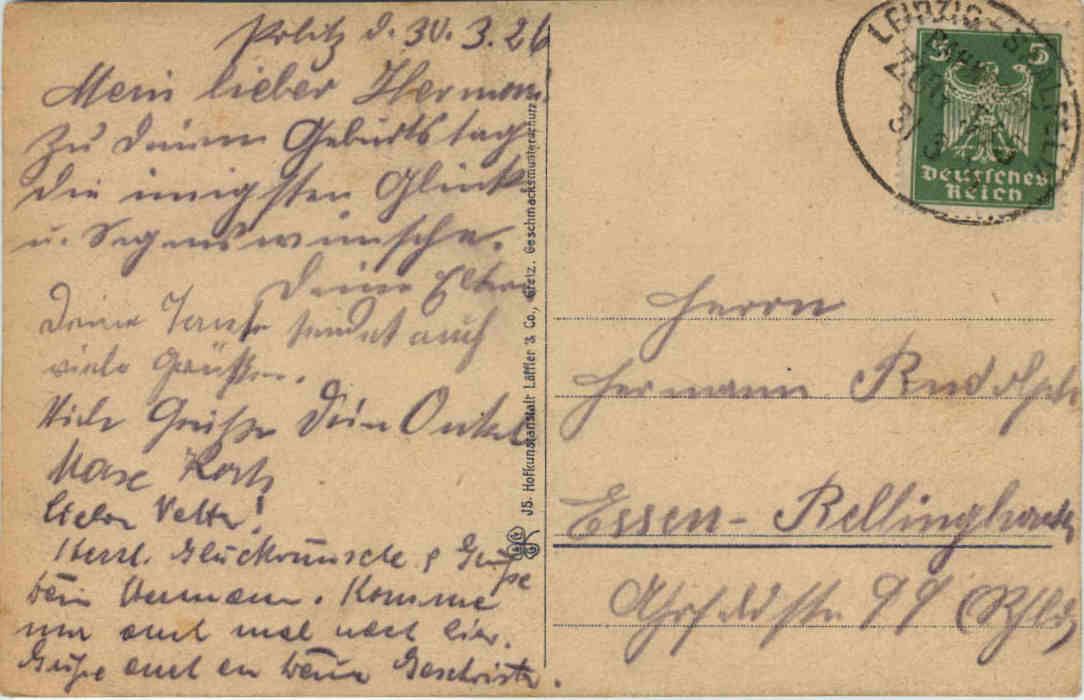 Pölitz d. 30. 3. 26
Mein lieber Hermann!
Zu deinem Geburtstag
die innigsten Glück
u. Segenswünsche.
Deine Eltern
Deine Tante sendet auch
viele Grüße.
Viele Grüße Dein Onkel
Max
Lieber Vetter!
Herzl. Glückwünsche & Grüße
Dein Hermann. Komme
nur auch mal nach hier.
Grüße auch an Deine Geschwister.
JS. Hofkunstanstalt Löffler & Co., Greiz. Geschmacksmusterschutz
LEIPZIG - SAALFELD
BAHNPOST
ZUG
31 3
5 5
Deutsches
Reich
Herrn
Hermann Rudolph
Essen-Rellinghausen
99 (Rhld)